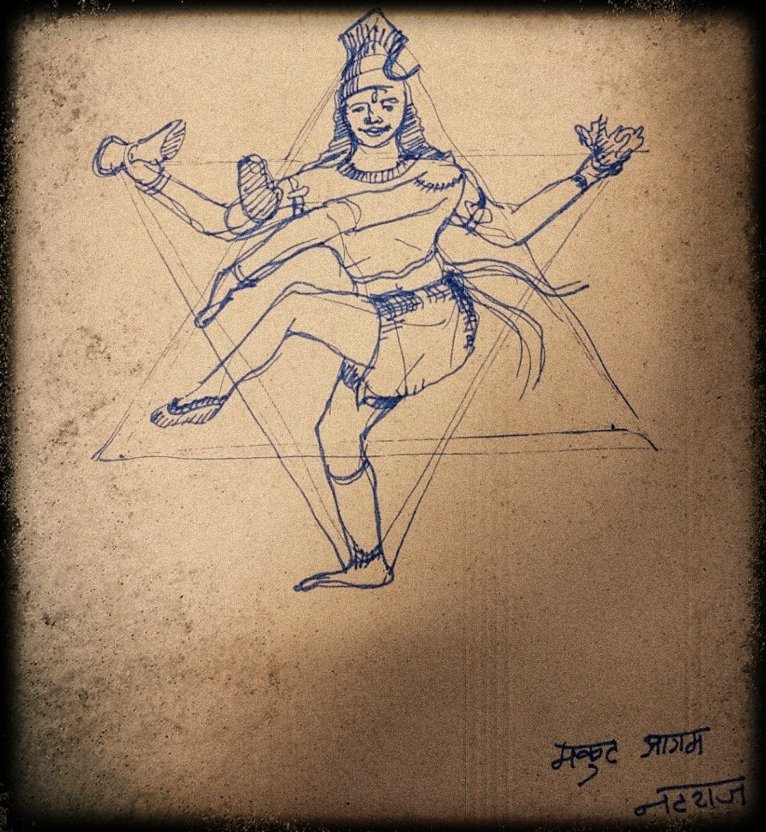 मकुट आगम
नटराज